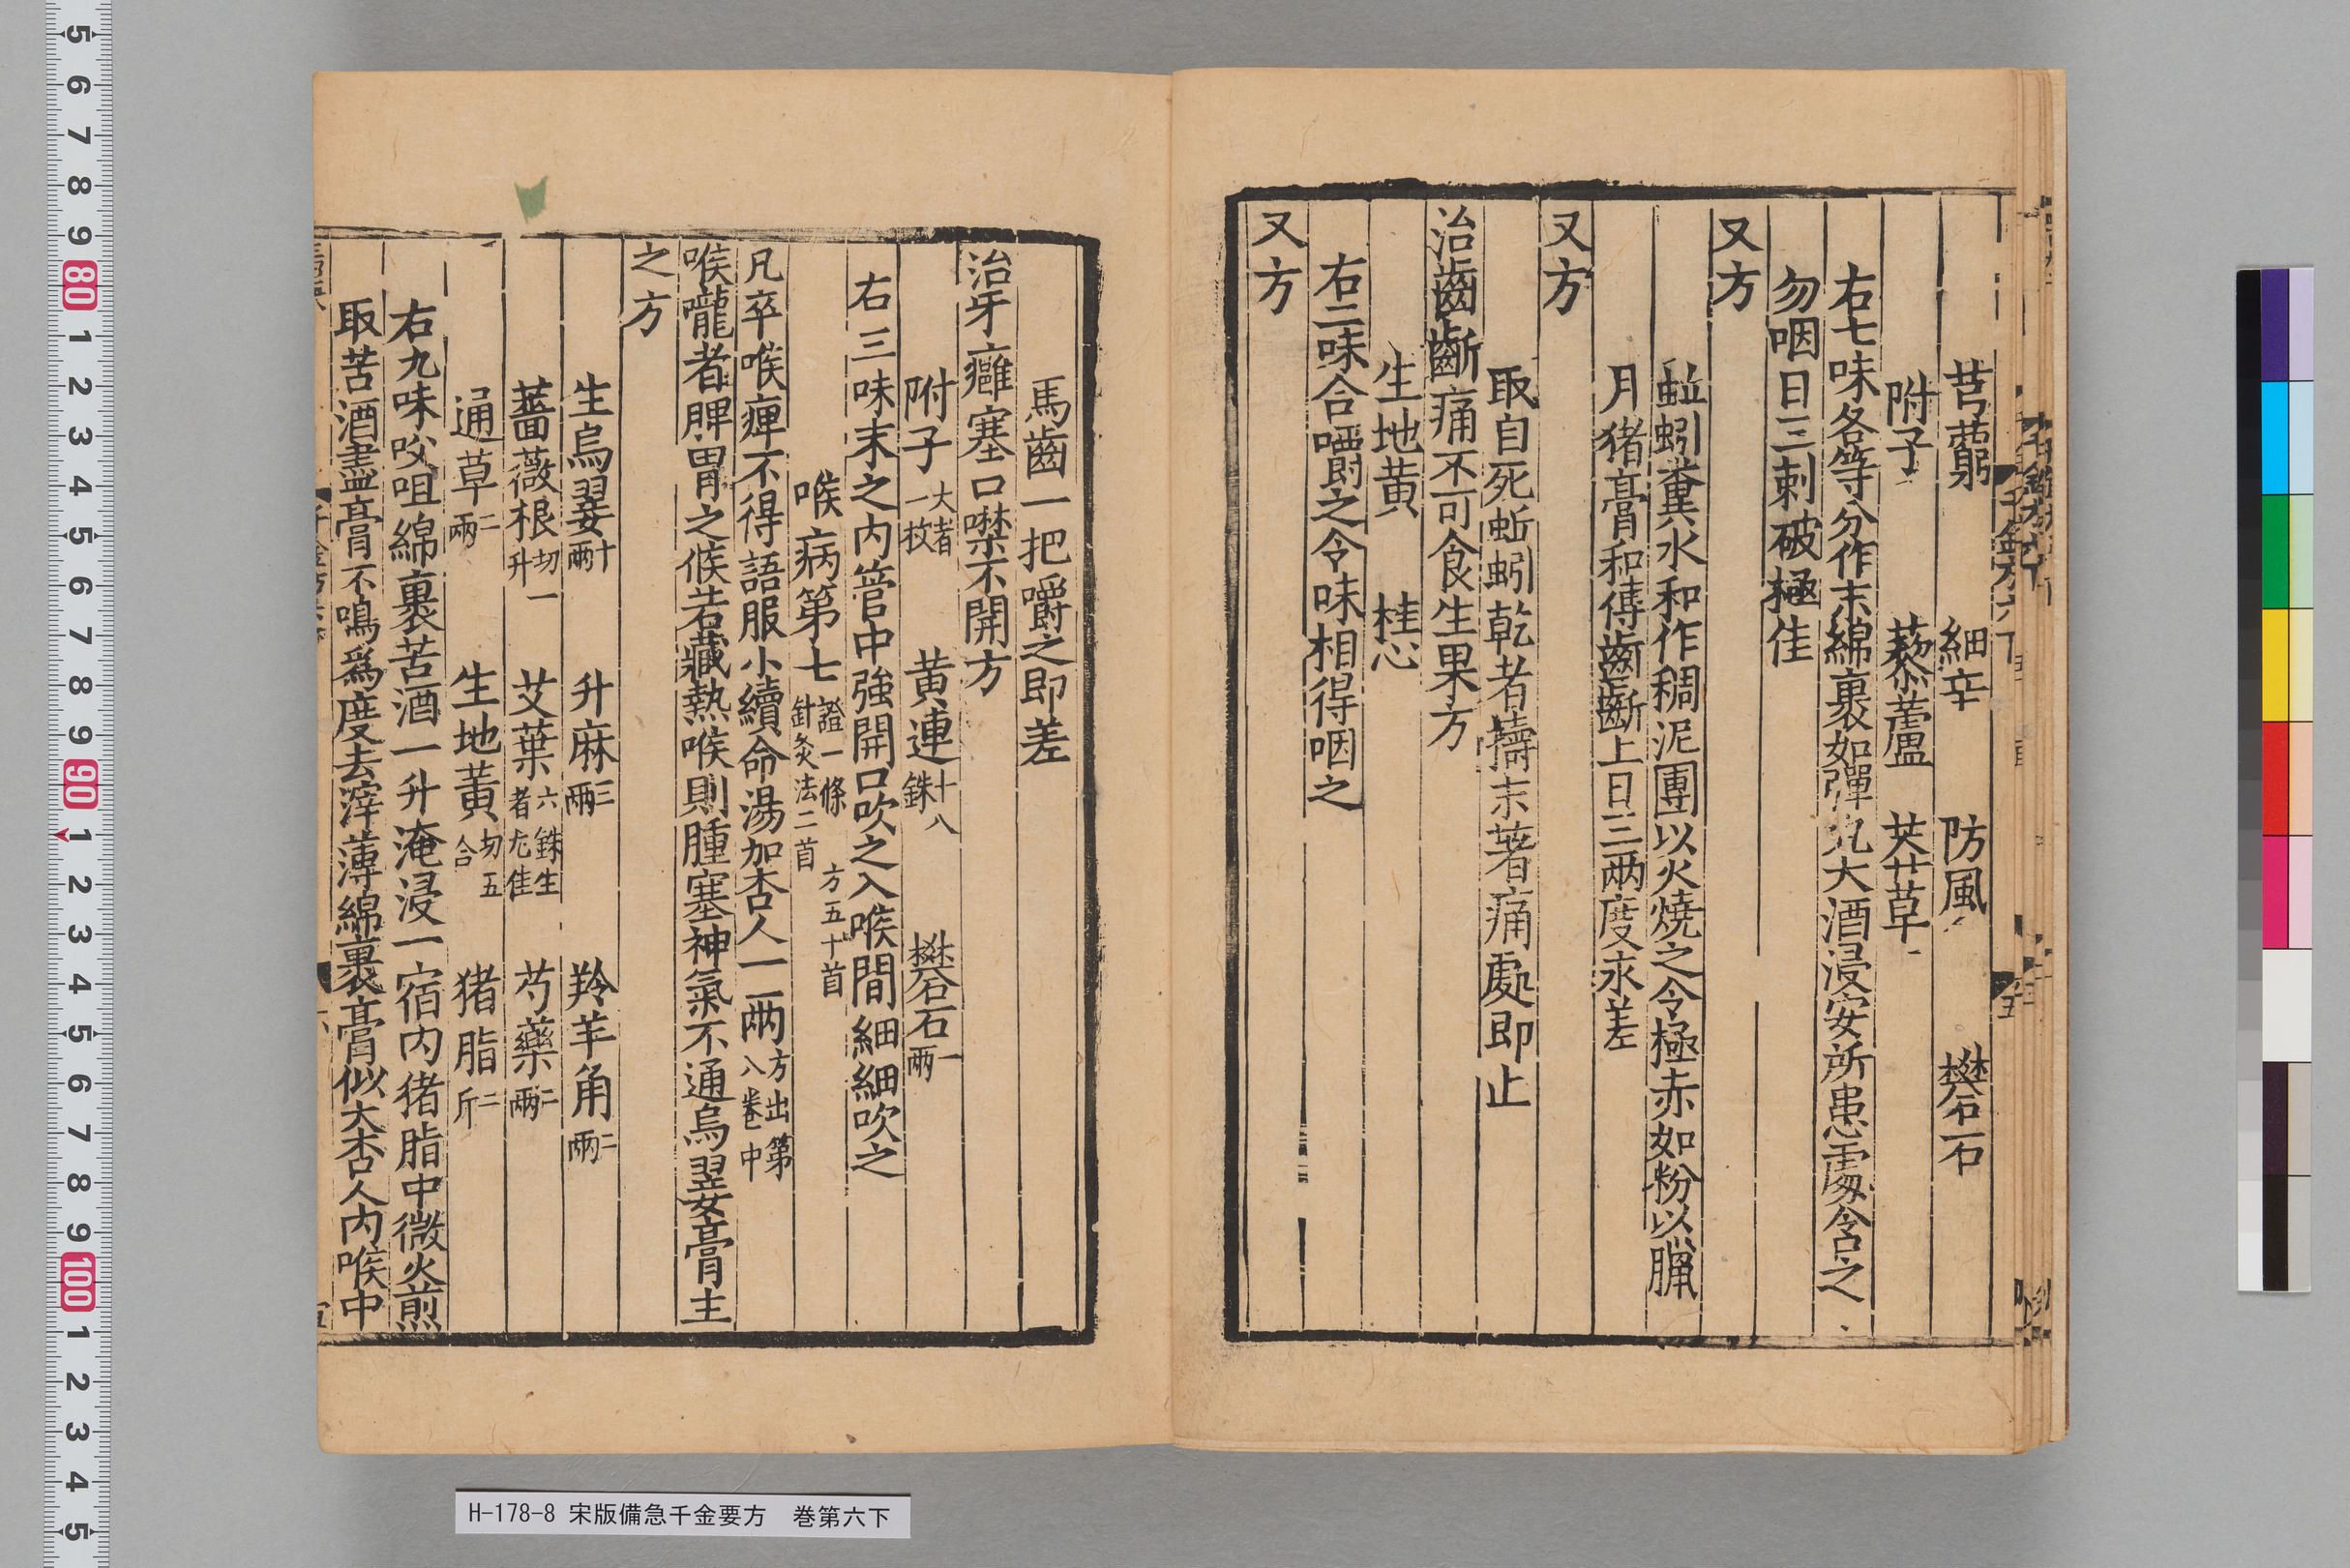 芎藭 細辛 防風 礬石
附子 藜蘆 莽草
右七味各等分作末綿裹如彈丸大酒浸安所患處含之
勿咽日三刺破極佳
又方
蚯蚓糞水和作稠泥團以火燒之令極赤如粉以臘
月猪膏和傅齒齗上日三兩度永差
又方
取自死蚯蚓乾者擣末著痛處即止
治齒齗痛不可食生果方
生地黄 桂心
右二味合嚼之令味相得咽之
又方
馬齒一把嚼之即差
治牙癰塞口噤不開方
附子大者一枚 黄連十八銖 礬石一兩
右三味末之内管中強開口吹之入喉間細細吹之
喉病第七證一條 方五十首 針灸法二首
凡卒喉痺不得語服小續命湯加杏人一兩方出第八卷中
喉嚨者脾胃之候若藏熱喉則腫塞神氣不通烏翣膏主
之方
生烏翣十兩 升麻三兩 羚羊角二兩
薔薇根切一升 艾葉六銖生者尤佳 芍藥二兩
通草二兩 生地黄切五合 猪脂二斤
右九味㕮咀綿裹苦酒一升淹浸一宿内猪脂中微火煎
取苦酒盡膏不鳴爲度去滓薄綿裹膏似大杏人内喉中
H-178-8 宋版備急千金要方 巻第六下
5
6
7
8
9
80
1
2
3
4
5
6
7
8
9
90
1
2
3
4
5
6
7
8
9
100
1
2
3
4
5